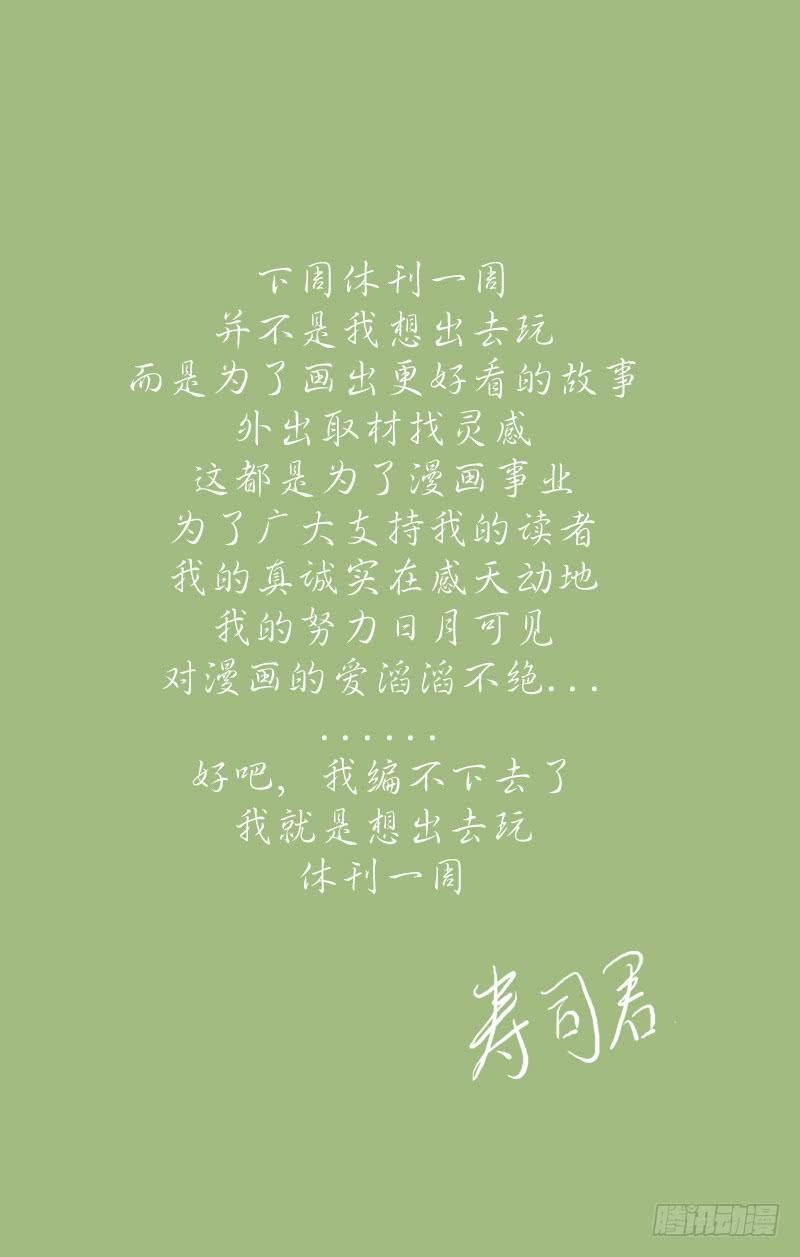 下周休刊一周
并不是我想出去玩
而是为了画出更好看的故事
外出取材找灵感
这都是为了漫画事业
为了广大支持我的读者
我的真诚实在感天动地
我的努力日月可见
对漫画的爱滔滔不绝...
......
好吧，我编不下去了
我就是想出去玩
休刊一周
寿司君
腾讯动漫